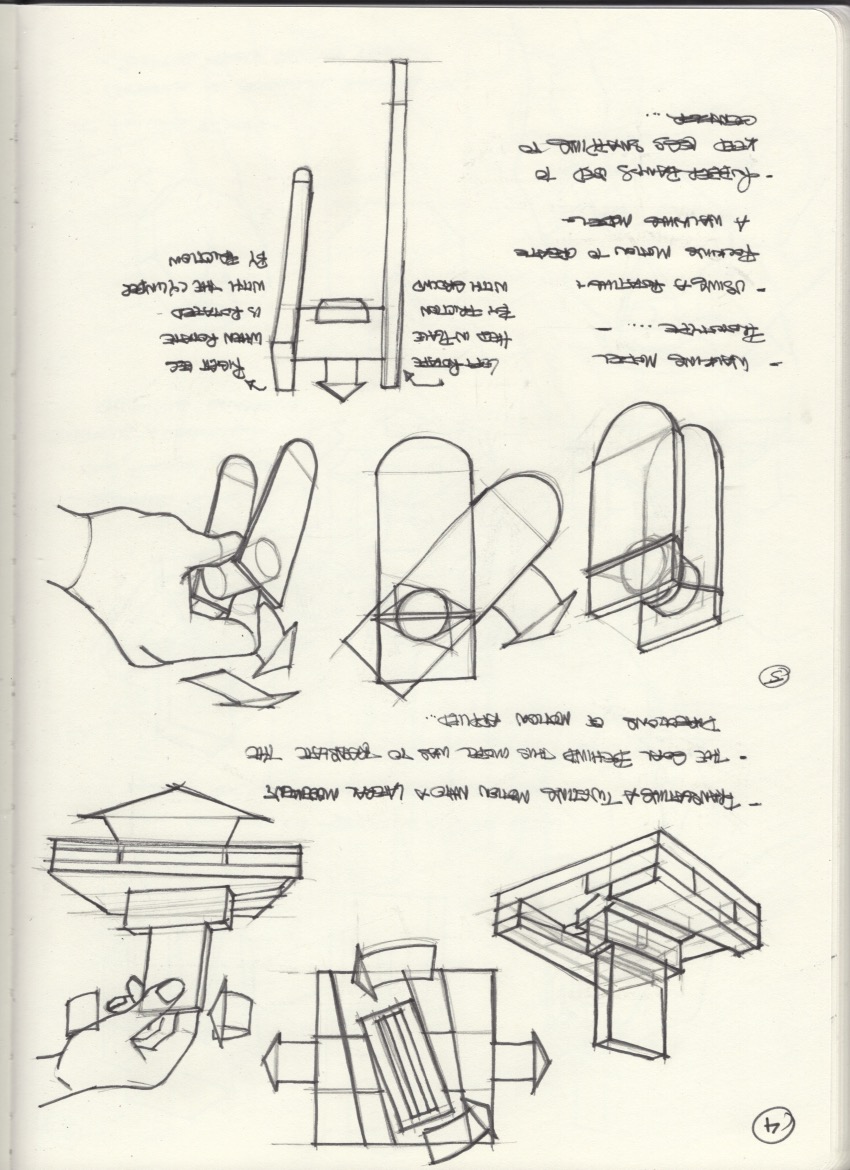 4
- TRANSLATING A TWISTING MOTION INTO A LATERAL MOVEMENT
- THE GOAL BEHIND THIS MODEL WAS TO TRANSLATE THE
DIRECTIONS OF MOTION APPLIED...
5
- WALKING MODEL
PROTOTYPE .... -
- USING A ROTATING +
ROCKING MOTION TO CREATE
A WALKING MODEL -
- RUBBER BANDS USED TO
KEEP LEGS SNAPPING TO
CENTER...
LEFT ROTATE
HELD IN PLACE
BY FRICTION
WITH GROUND
RIGHT LEG
WHEN ROTATE
IS ROTATED
WITH THE CYLINDER
BY FRICTION